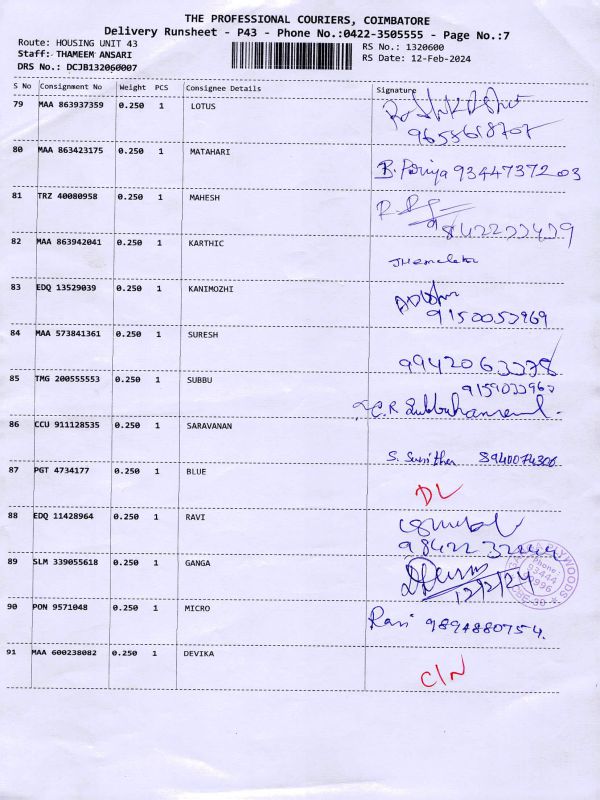 THE PROFESSIONAL COURIERS, COIMBATORE
Delivery Runsheet - P43 - Phone No.:0422-3505555 - Page No.:7
Route: HOUSING UNIT 43 RS No.: 1320600
Staff: THAMEEM ANSARI RS Date: 12-Feb-2024
DRS No.: DCJB132060007
S No Consignment No Weight PCS Consignee Details Signature
79 MAA 863937359 0.250 1 LOTUS
9655618707
80 MAA 863423175 0.250 1 MATAHARI
B. Poriya 9344737203
81 TRZ 40080958 0.250 1 MAHESH
82 MAA 863942041 0.250 1 KARTHIC
83 EDQ 13529039 0.250 1 KANIMOZHI
84 MAA 573841361 0.250 1 SURESH
85 TMG 200555553 0.250 1 SUBBU
C.R
86 CCU 911128535 0.250 1 SARAVANAN
S. Sunitha 8940074306
87 PGT 4734177 0.250 1 BLUE
DL
88 EDQ 11428964 0.250 1 RAVI
89 SLM 339055618 0.250 1 GANGA
12/2/24
90 PON 9571048 0.250 1 MICRO
Ravi 9894880754.
91 MAA 600238082 0.250 1 DEVIKA
C/N